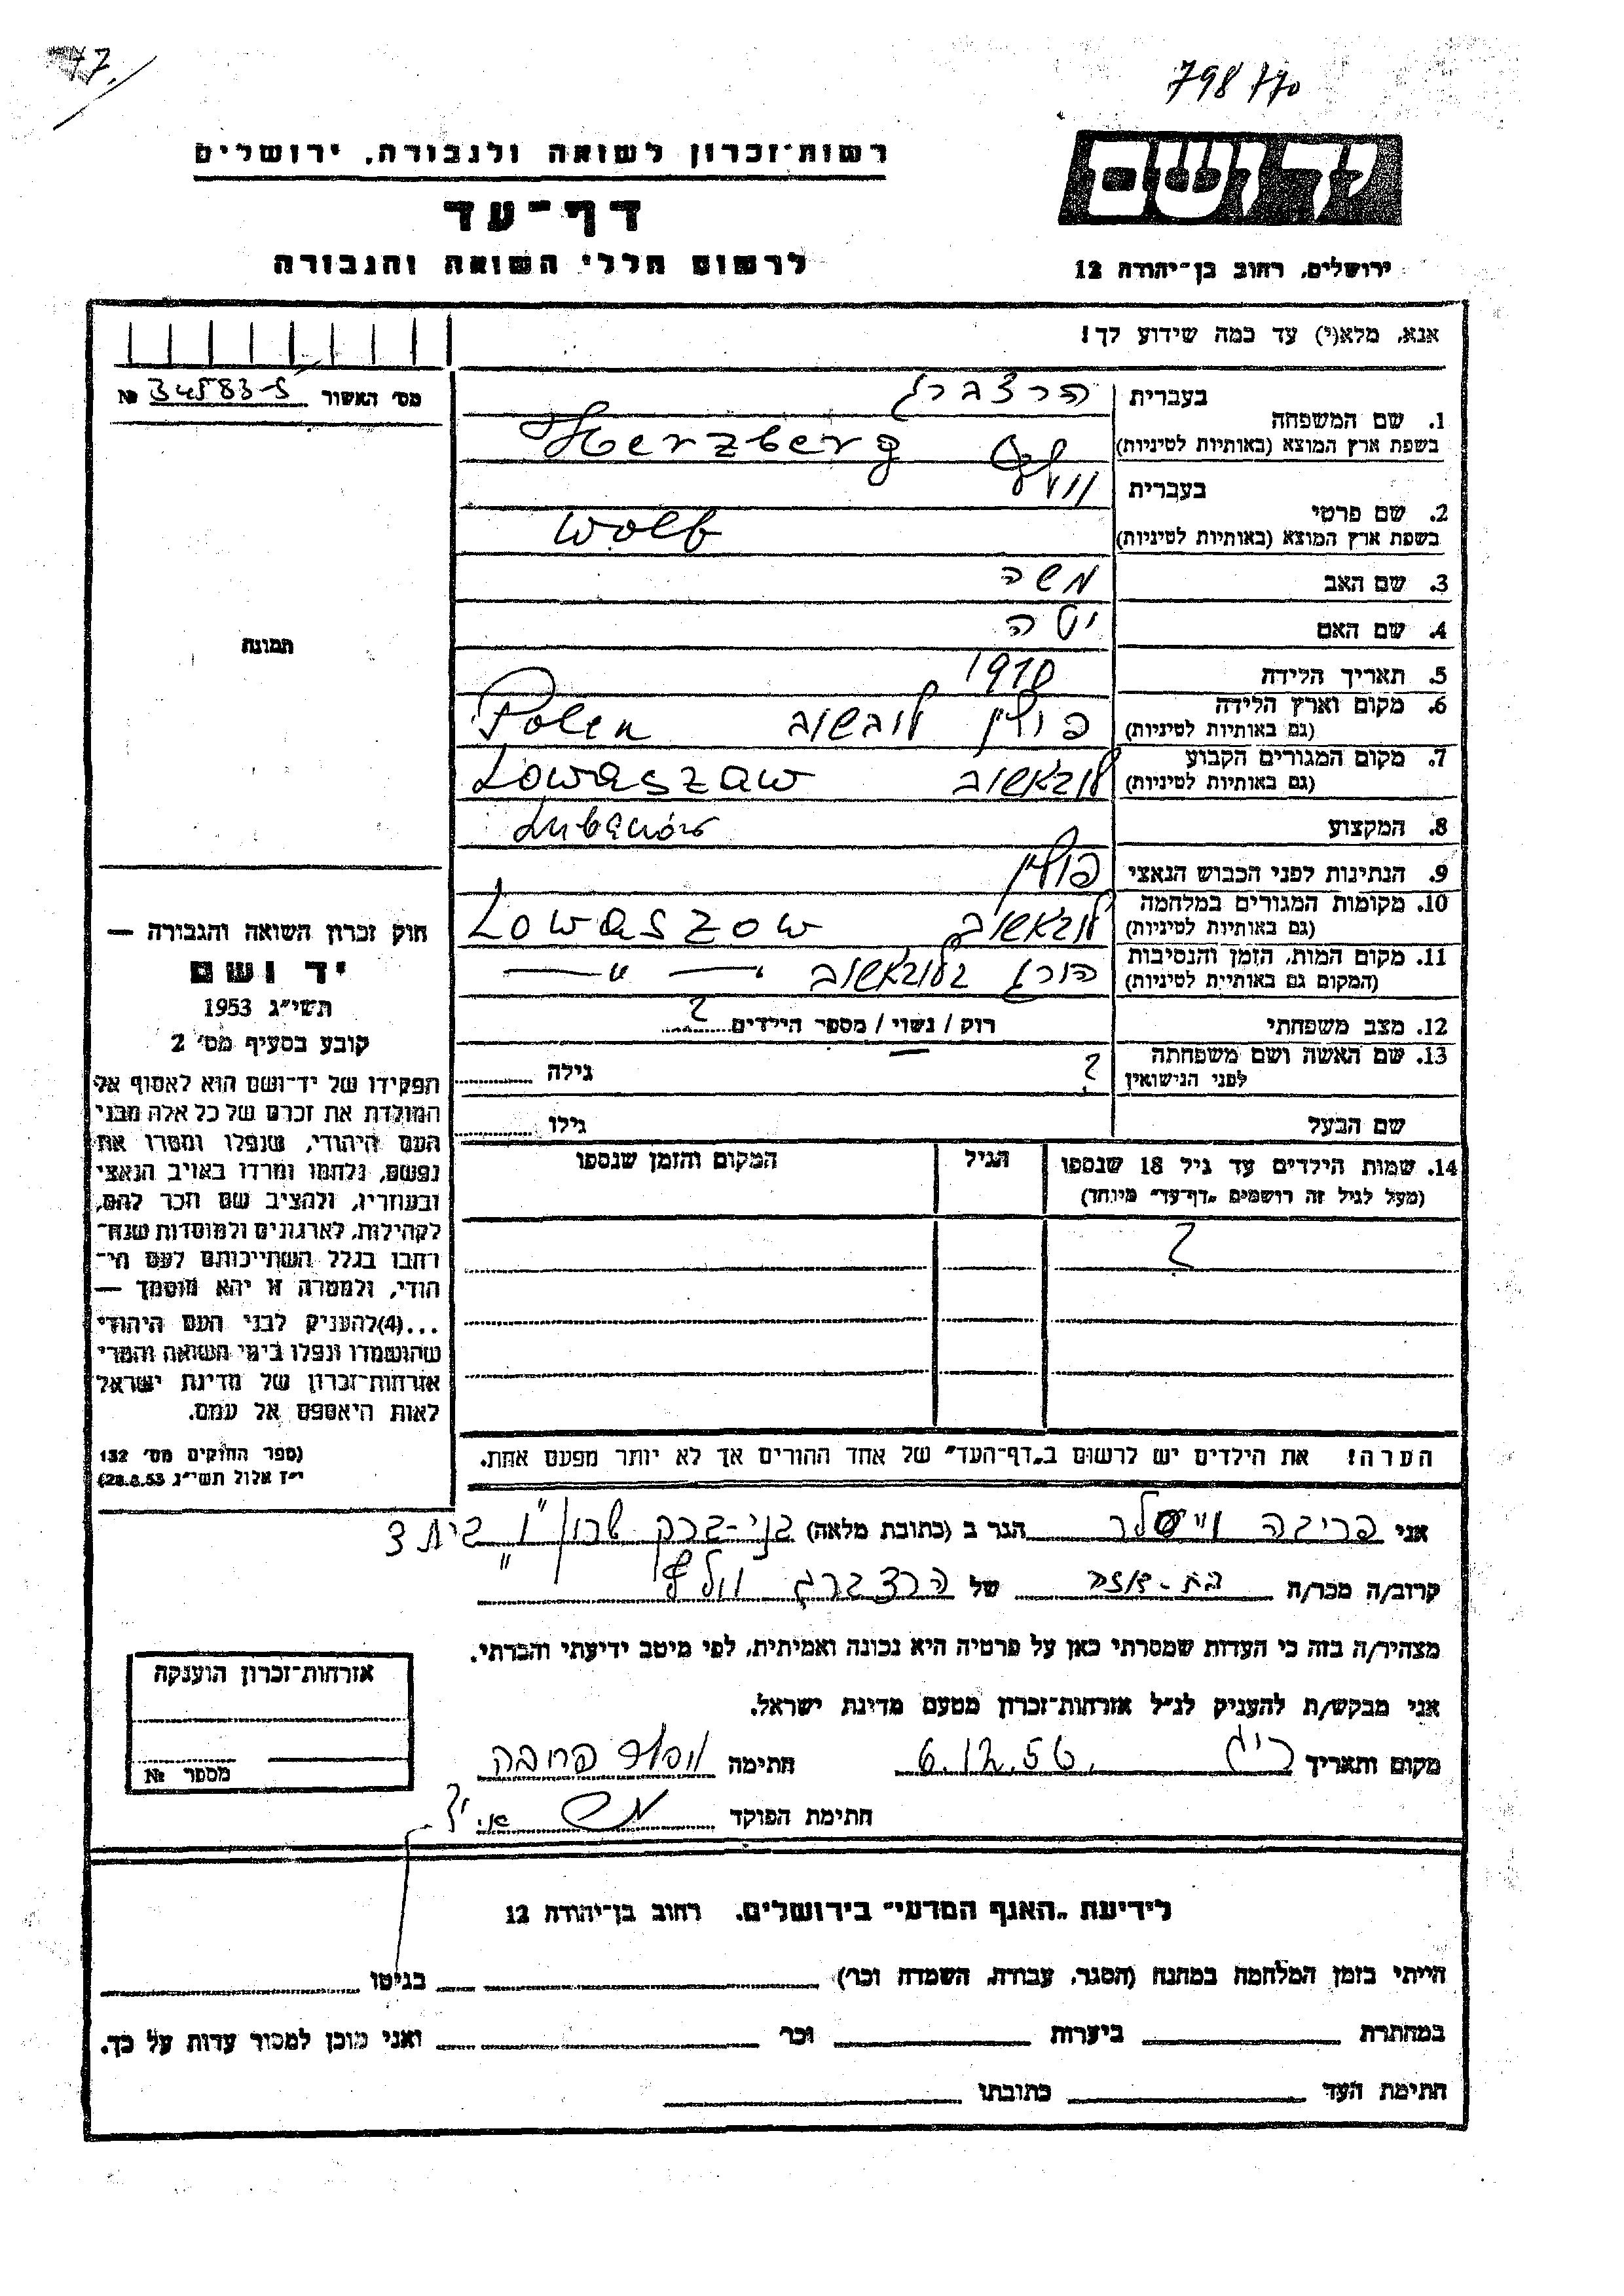 77.
798 770
רשות־זכרון לשואה ולגבורה, ירושלים
דף־עד
לרשום חללי השואה והגבורה
יד ושם
ירושלים, רחוב בן־יהודה 12
אנא, מלא(י) עד כמה שידוע לך!
מס׳ האשור № 34583-5
תמונה
1. שם המשפחה בעברית הרצברג
בשפת ארץ המוצא (באותיות לטיניות) Herzberg
2. שם פרטי בעברית וולף
בשפת ארץ המוצא (באותיות לטיניות) Wolf
3. שם האב משה
4. שם האם יטה
5. תאריך הלידה 1910
6. מקום וארץ הלידה פולין לובשוב Polen
(גם באותיות לטיניות)
7. מקום המגורים הקבוע לובאשוב Lowaszaw
(גם באותיות לטיניות)
8. המקצוע
9. הנתינות לפני הכבוש הנאצי פולין
10. מקומות המגורים במלחמה לובאשוב Lowaszow
(גם באותיות לטיניות)
11. מקום המות, הזמן והנסיבות הורג בלובאשוב — " —
(המקום גם באותיות לטיניות)
12. מצב משפחתי רווק / נשוי / מספר הילדים ?
13. שם האשה ושם משפחתה ? גילה
לפני הנישואין
שם הבעל גילו
14. שמות הילדים עד גיל 18 שנספו הגיל המקום והזמן שנספו
(מעל לגיל זה רושמים „דף־עד״ מיוחד)
?
הערה! את הילדים יש לרשום ב„דף־העד״ של אחד ההורים אך לא יותר מפעם אחת.
חוק זכרון השואה והגבורה —
יד ושם
תשי״ג 1953
קובע בסעיף מס׳ 2
תפקידו של יד־ושם הוא לאסוף אל
המולדת את זכרם של כל אלה מבני
העם היהודי, שנפלו ומסרו את
נפשם, נלחמו ומרדו באויב הנאצי
ובעוזריו, ולהציב שם וזכר להם,
לקהילות, לארגונים ולמוסדות שנח־
רבו בגלל השתייכותם לעם הי־
הודי, ולמטרה זו יהא מוסמך —
...(4)להעניק לבני העם היהודי
שהושמדו ונפלו בימי השואה והמרי
אזרחות־זכרון של מדינת ישראל
לאות היאספם אל עמם.
(ספר החוקים מס׳ 132
י״ז אלול תשי״ג 28.8.53)
אני הגר ב (כתובת מלאה) בני-ברק
קרוב/ה מכר/ה בת-דודה של הרצברג וולף
מצהיר/ה בזה כי העדות שמסרתי כאן על פרטיה היא נכונה ואמיתית, לפי מיטב ידיעתי והכרתי.
אני מבקש/ת להעניק לנ״ל אזרחות־זכרון מטעם מדינת ישראל.
מקום ותאריך 6.12.56 חתימה
חתימת הפוקד
אזרחות־זכרון הוענקה
מספר №
לידיעת „האגף המדעי״ בירושלים, רחוב בן־יהודה 12
הייתי בזמן המלחמה במחנה (הסגר, עבודה, השמדה וכו׳) בגיטו
במחתרת ביערות וכו׳ ואני מוכן למסור עדות על כך.
חתימת העד כתובתו